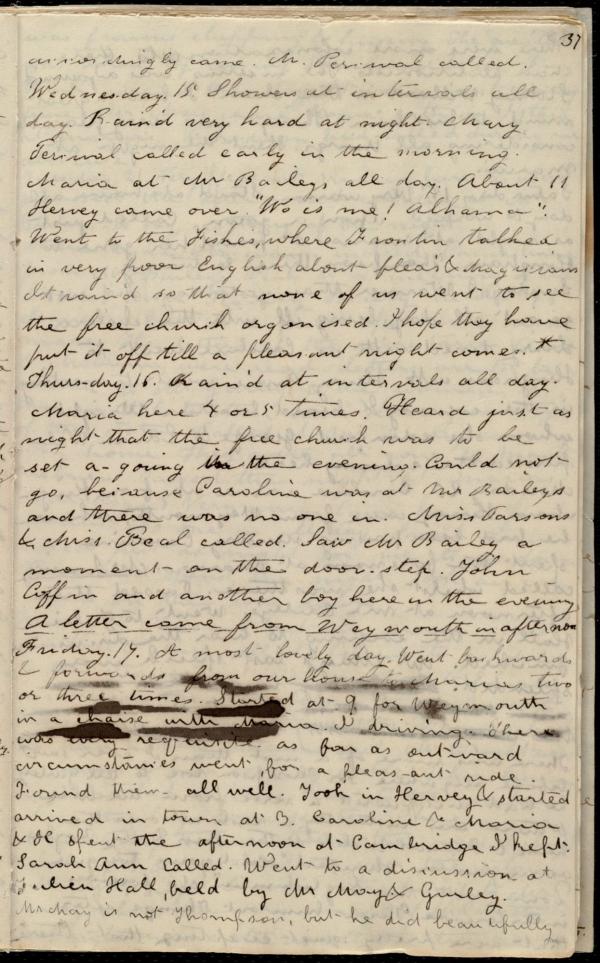 37
accordingly came. M. Perival called.
Wednesday. 15. Showers at intervals all
day. Raind very hard at night. Mary
Perival called early in the morning.
Maria at Mr Baileys all day. About 11
Hervey came over. "Wo is me! Alhama".
Went to the Fishes, where Frontin talked
in very poor English about fleas & Magicians
It raind so that none of us went to see
the free church organised. I hope they have
put it off till a pleasant night comes. *
Thursday. 16. Rain'd at intervals all day.
Maria here 4 or 5 times. Heard just as
night that the free church was to be
set a-going in the evening. Could not
go, because Caroline was at Mr Baileys
and there was no one in. Miss Parsons
& Miss. Beal called. Saw Mr Bailey a
moment on the door-step. John
Coffin and another boy here in the evening
A letter came from Weymouth in afternoon
Friday. 17. A most lovely day. Went backwards
& forwards from our house to Marias two
or three times. Started at 9 for Weymouth
in a chaise with Maria I driving. There
was every requisite as far as outward
circumstances went, for a pleas-ant ride.
Found them all well. Took in Hervey & started
arrived in town at 3. Caroline & Maria
& H spent the afternoon at Cambridge I kept.
Sarah Ann called. Went to a discussion at
Julien Hall, held by Mr May & Gurley.
Mr May is not Thompson, but he did beautifully